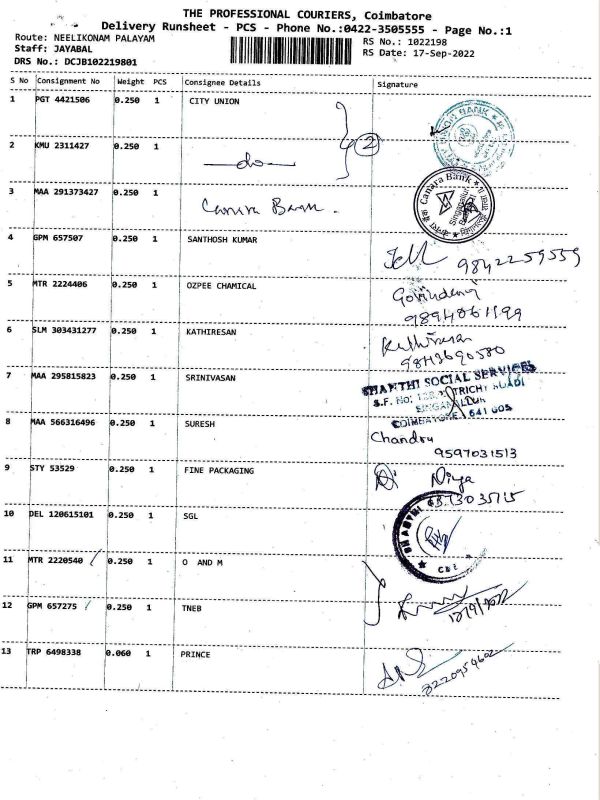 THE PROFESSIONAL COURIERS, Coimbatore
Delivery Runsheet - PCS - Phone No.:0422-3505555 - Page No.:1
Route: NEELIKONAM PALAYAM
RS No.: 1022198
Staff: JAYABAL
RS Date: 17-Sep-2022
DRS No.: DCJB102219801
S No Consignment No Weight PCS Consignee Details Signature
1 PGT 4421506 0.250 1 CITY UNION
2 KMU 2311427 0.250 1 —do— 2
3 MAA 291373427 0.250 1 Canara Bank. Canara Bank
4 GPM 657507 0.250 1 SANTHOSH KUMAR
9842259559
5 MTR 2224406 0.250 1 OZPEE CHAMICAL
9894061199
6 SLM 303431277 0.250 1 KATHIRESAN Kathiresan
9843690580
7 MAA 295815823 0.250 1 SRINIVASAN SHANTHI SOCIAL SERVICES
S.F. No: TRICHY ROAD
SINGANALLUR
COIMBATORE 641 005
8 MAA 566316496 0.250 1 SURESH Chandru
9597031513
9 STY 53529 0.250 1 FINE PACKAGING Divya
10 DEL 120615101 0.250 1 SGL SHANTHI
CBE
11 MTR 2220540 0.250 1 O AND M
12 GPM 657275 0.250 1 TNEB
13 TRP 6498338 0.060 1 PRINCE
8220954602